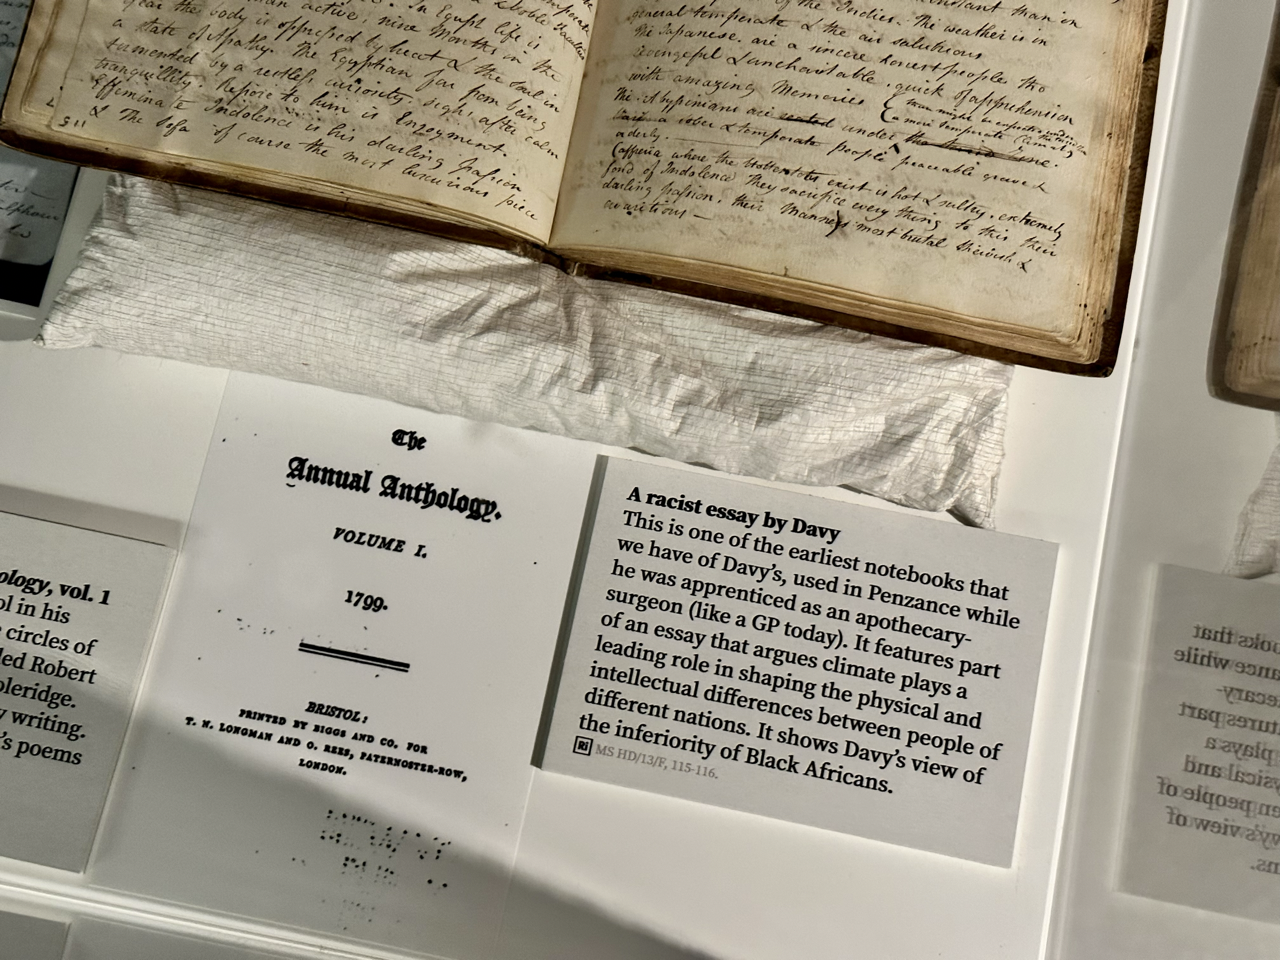 man active; nine Months in the
year the body is oppressed by heat & the soul in a
state of Apathy. The Egyptian far from being
tormented by a restless curiosity, sighs after calm
tranquillity. Repose to him is Enjoyment.
Effeminate Indolence is his darling Passion
& The Sofa of course the most luxurious piece
of the Indies. The weather is in
general temperate & the air salubrious
The Japanese are a sincere honest people, tho
revengeful & uncharitable, quick of apprehension
with amazing Memories
The Abyssinians are seated under
a sober & temperate people peaceable grave &
orderly.
Caffreria where the Hottentots exist is hot & sultry, extremely
fond of Indolence They sacrifice every thing to this their
darling passion, their Manners most brutal thievish &
avaricious —
ology, vol. 1
ol in his
circles of
led Robert
oleridge.
writing.
's poems
The
Annual Anthology.
VOLUME I.
1799.
BRISTOL:
PRINTED BY BIGGS AND CO. FOR
T. N. LONGMAN AND O. REES, PATERNOSTER-ROW,
LONDON.
A racist essay by Davy
This is one of the earliest notebooks that
we have of Davy's, used in Penzance while
he was apprenticed as an apothecary-
surgeon (like a GP today). It features part
of an essay that argues climate plays a
leading role in shaping the physical and
intellectual differences between people of
different nations. It shows Davy's view of
the inferiority of Black Africans.
Ri MS HD/13/F, 115-116.